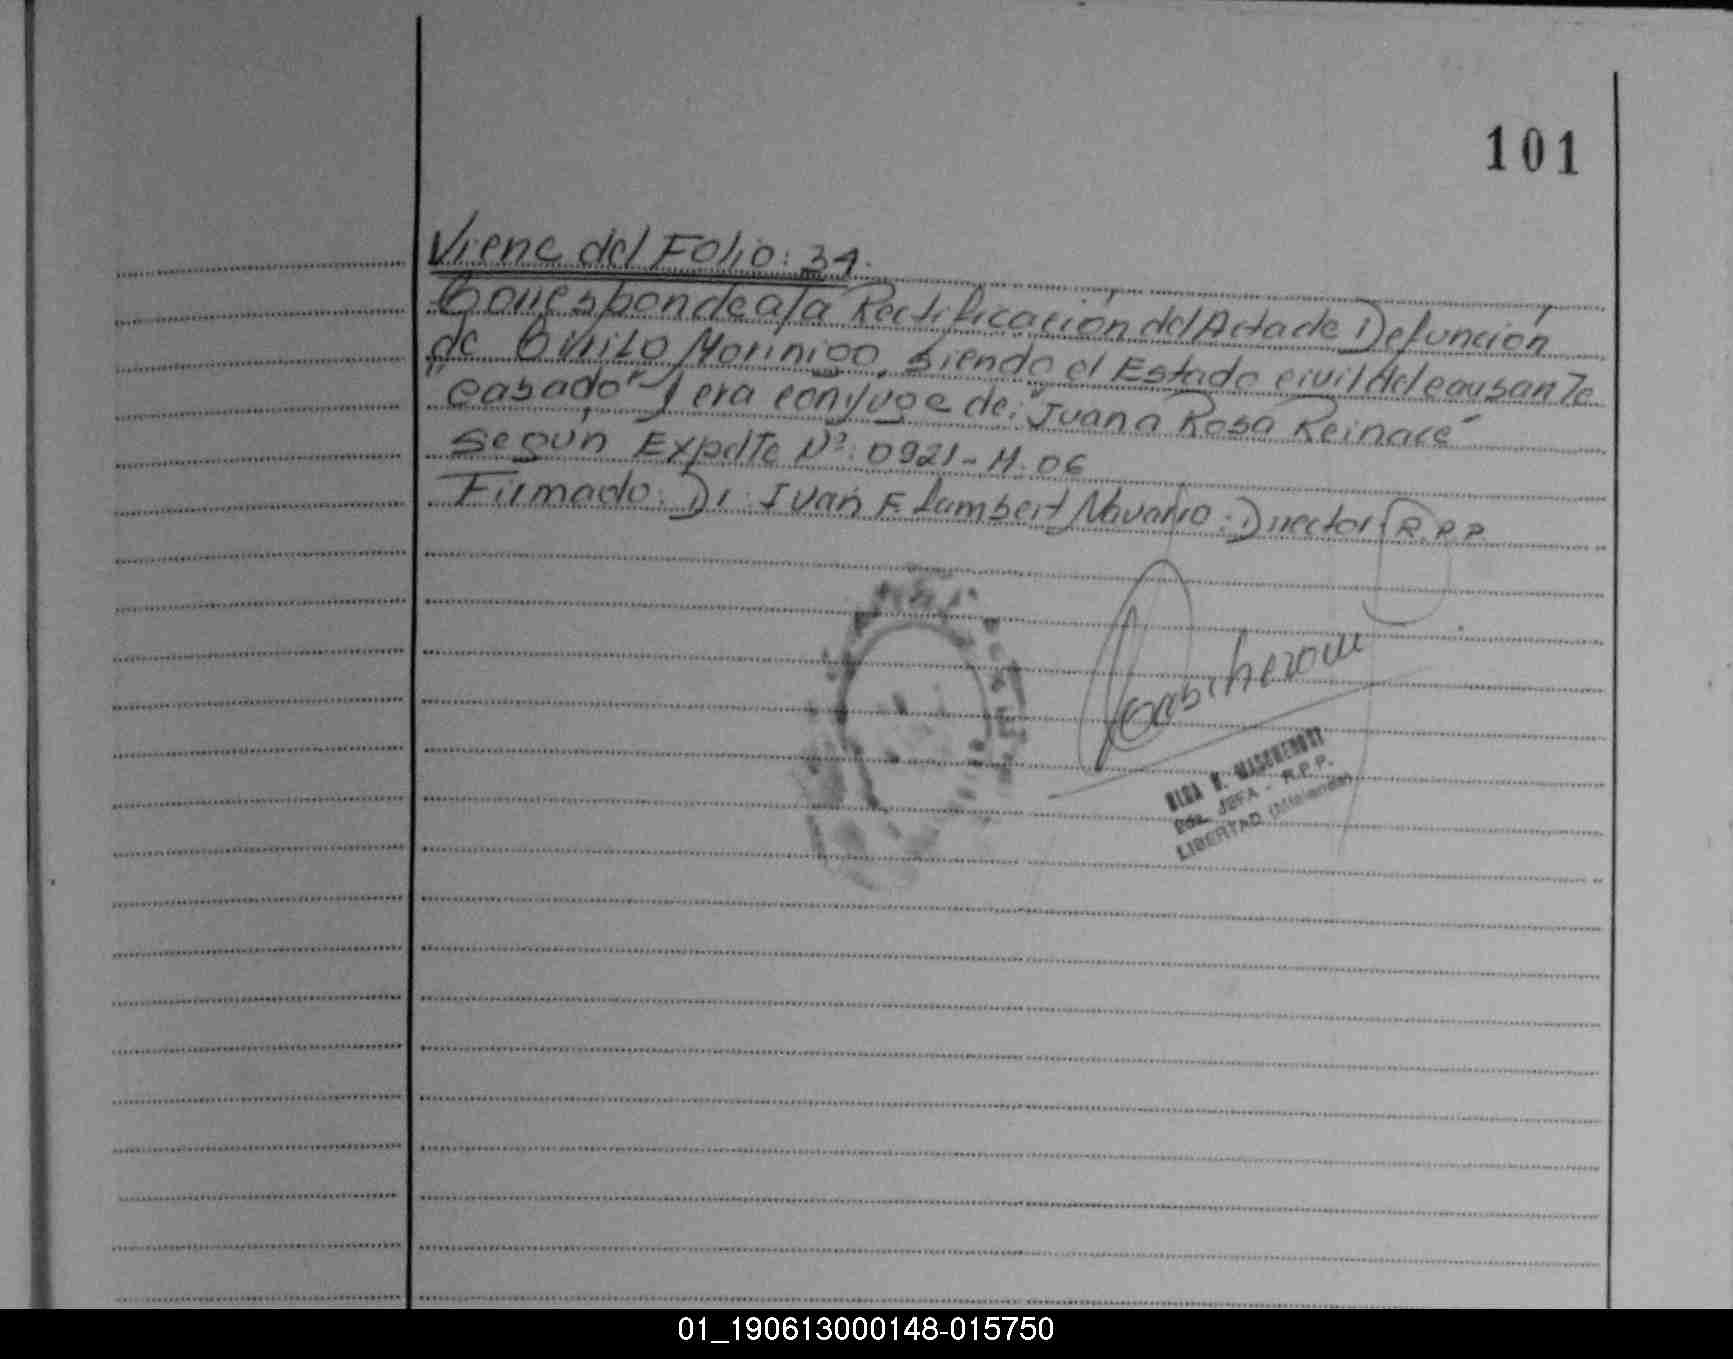 101
Viene del Folio: 34.
Corresponde a la Rectificación del Acta de Defunción
de Cirilo Morinigo, siendo el Estado civil del causante
"casado" y era conyuge de: "Juana Rosa Reinare"
Según Expdte Nº: 0921-M.06
Firmado: Dr: Ivan F. Lambert Navarro: Director R.R.P.
JEFA - R.P.P.
LIBERTAD
01_190613000148-015750